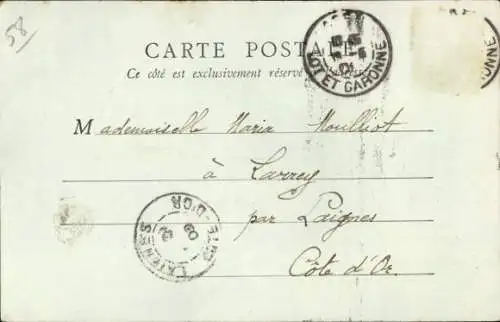 58
CARTE POSTALE
Ce côté est exclusivement réservé
LOT ET GARONNE
Mademoiselle Maria Moulliot
à Larrey
par Laignes
Côte d'Or
CÔTE-D'OR
LAIGNES
09